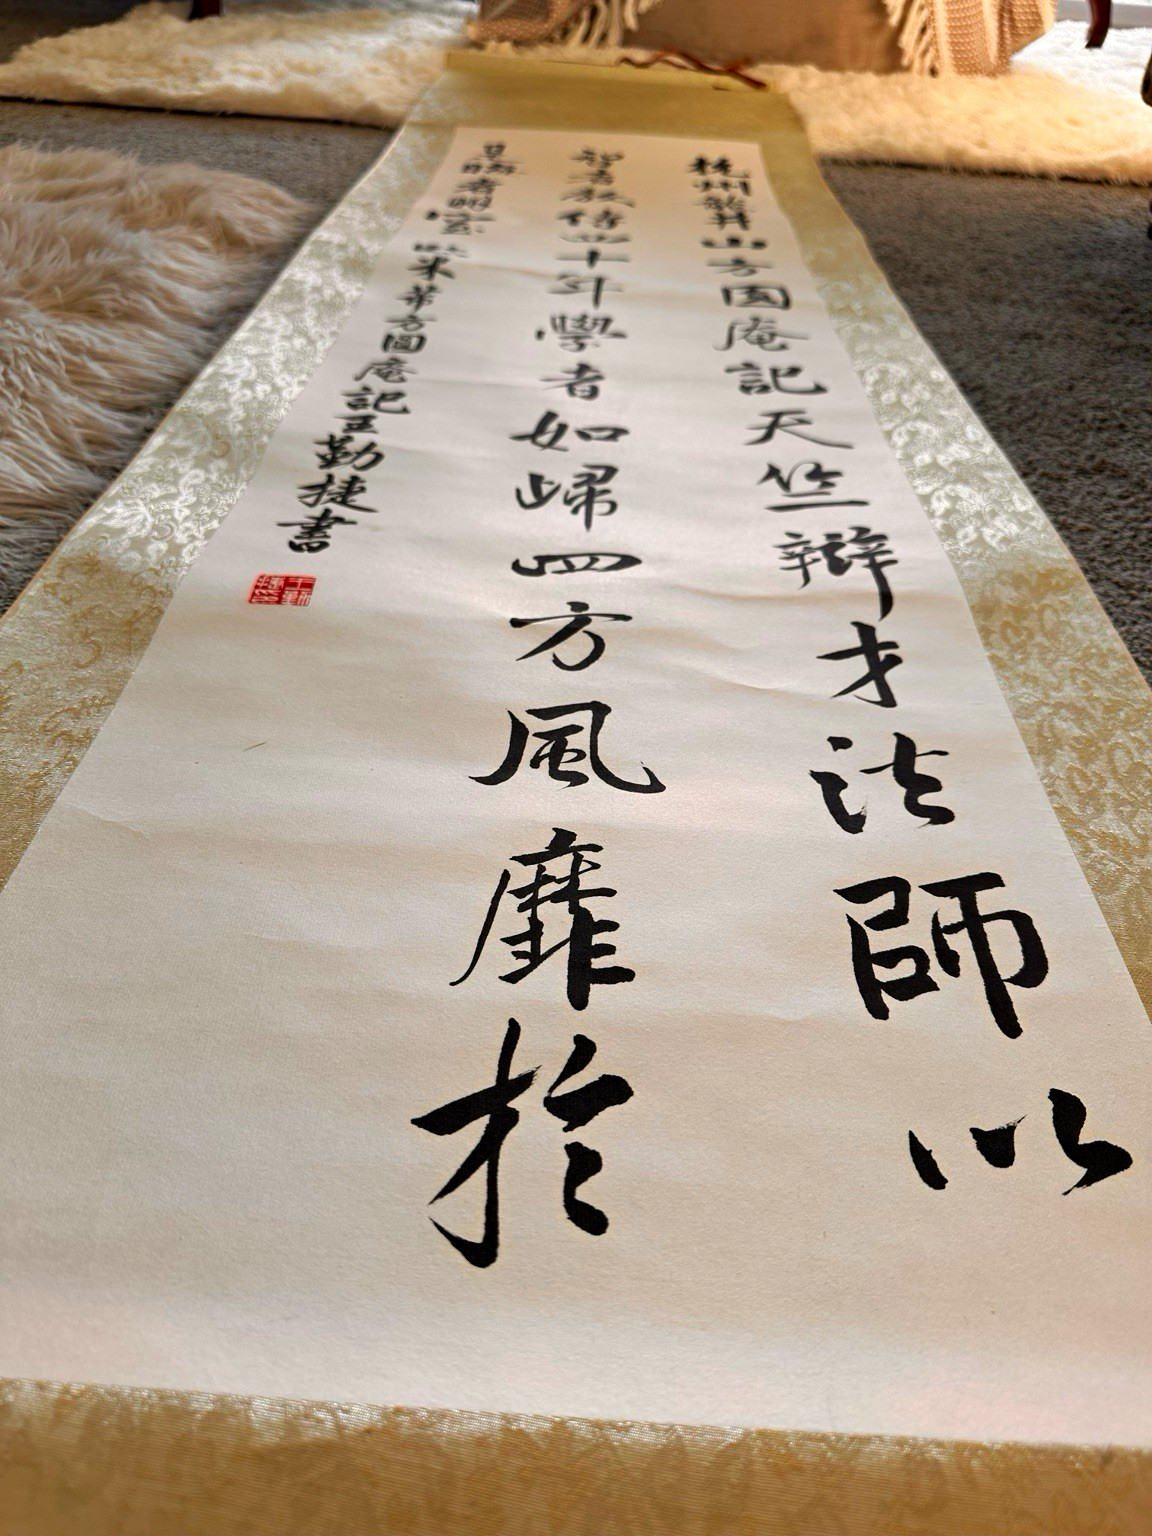 杭州龍井山方圓庵記天竺辯才法師以
智者教傳四十年學者如歸四方風靡於
是晦者明窒 臨米芾方圓庵記王勤捷書